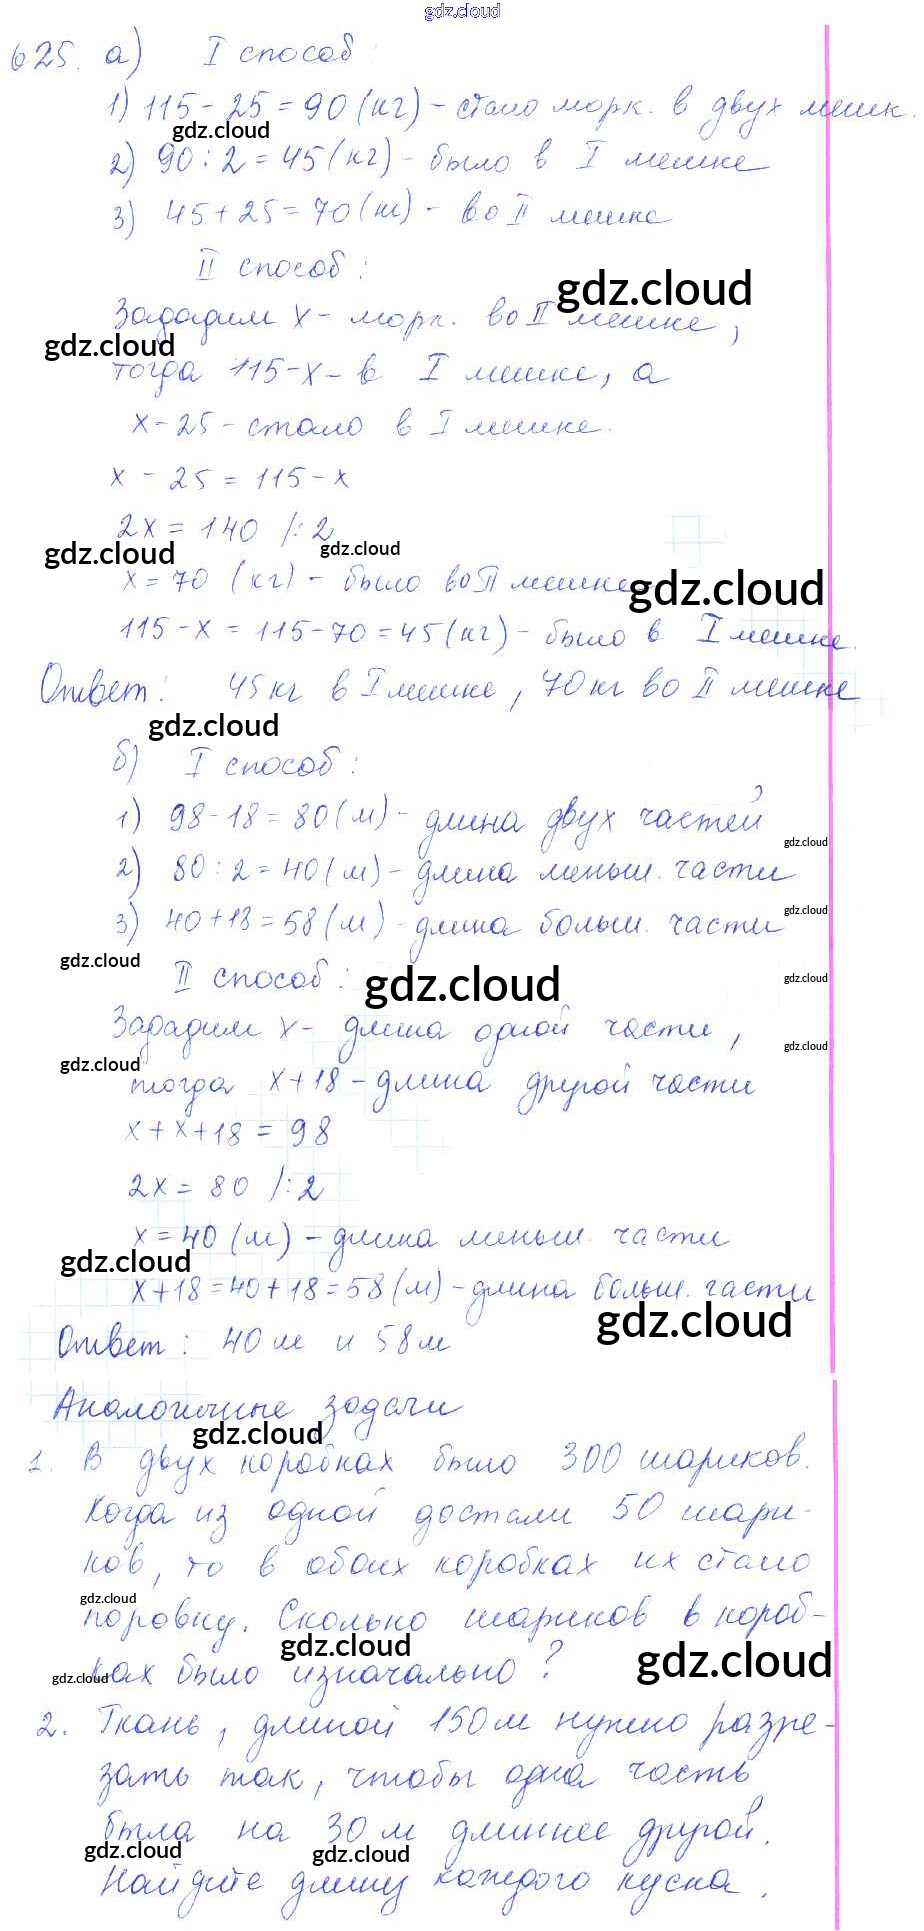 gdz.cloud
625. а) I способ:
1) 115 - 25 = 90 (кг) - стало морк. в двух мешк.
gdz.cloud
2) 90 : 2 = 45 (кг) - было в I мешке
3) 45 + 25 = 70 (кг) - во II мешке
II способ:
gdz.cloud
Зададим x - морк. во II мешке,
gdz.cloud
тогда 115 - x - в I мешке, а
x - 25 - стало в I мешке.
x - 25 = 115 - x
2x = 140 /:2
gdz.cloud gdz.cloud
x = 70 (кг) - было во II мешке
gdz.cloud
115 - x = 115 - 70 = 45 (кг) - было в I мешке.
Ответ: 45 кг в I мешке, 70 кг во II мешке
gdz.cloud
б) I способ:
1) 98 - 18 = 80 (м) - длина двух частей
gdz.cloud
2) 80 : 2 = 40 (м) - длина меньш. части
gdz.cloud
3) 40 + 18 = 58 (м) - длина больш. части
gdz.cloud
II способ:
gdz.cloud gdz.cloud
Зададим x - длина одной части,
gdz.cloud
gdz.cloud
тогда x + 18 - длина другой части
x + x + 18 = 98
2x = 80 /:2
x = 40 (м) - длина меньш. части
gdz.cloud
x + 18 = 40 + 18 = 58 (м) - длина больш. части
gdz.cloud
Ответ: 40 м и 58 м
Аналогичные задачи
gdz.cloud
1. В двух коробках было 300 шариков.
Когда из одной достали 50 шари-
ков, то в обоих коробках их стало
gdz.cloud
поровну. Сколько шариков в короб-
gdz.cloud gdz.cloud
ках было изначально?
gdz.cloud
2. Ткань, длиной 150 м нужно разре-
зать так, чтобы одна часть
была на 30 м длиннее другой.
gdz.cloud gdz.cloud
Найдите длину каждого куска.